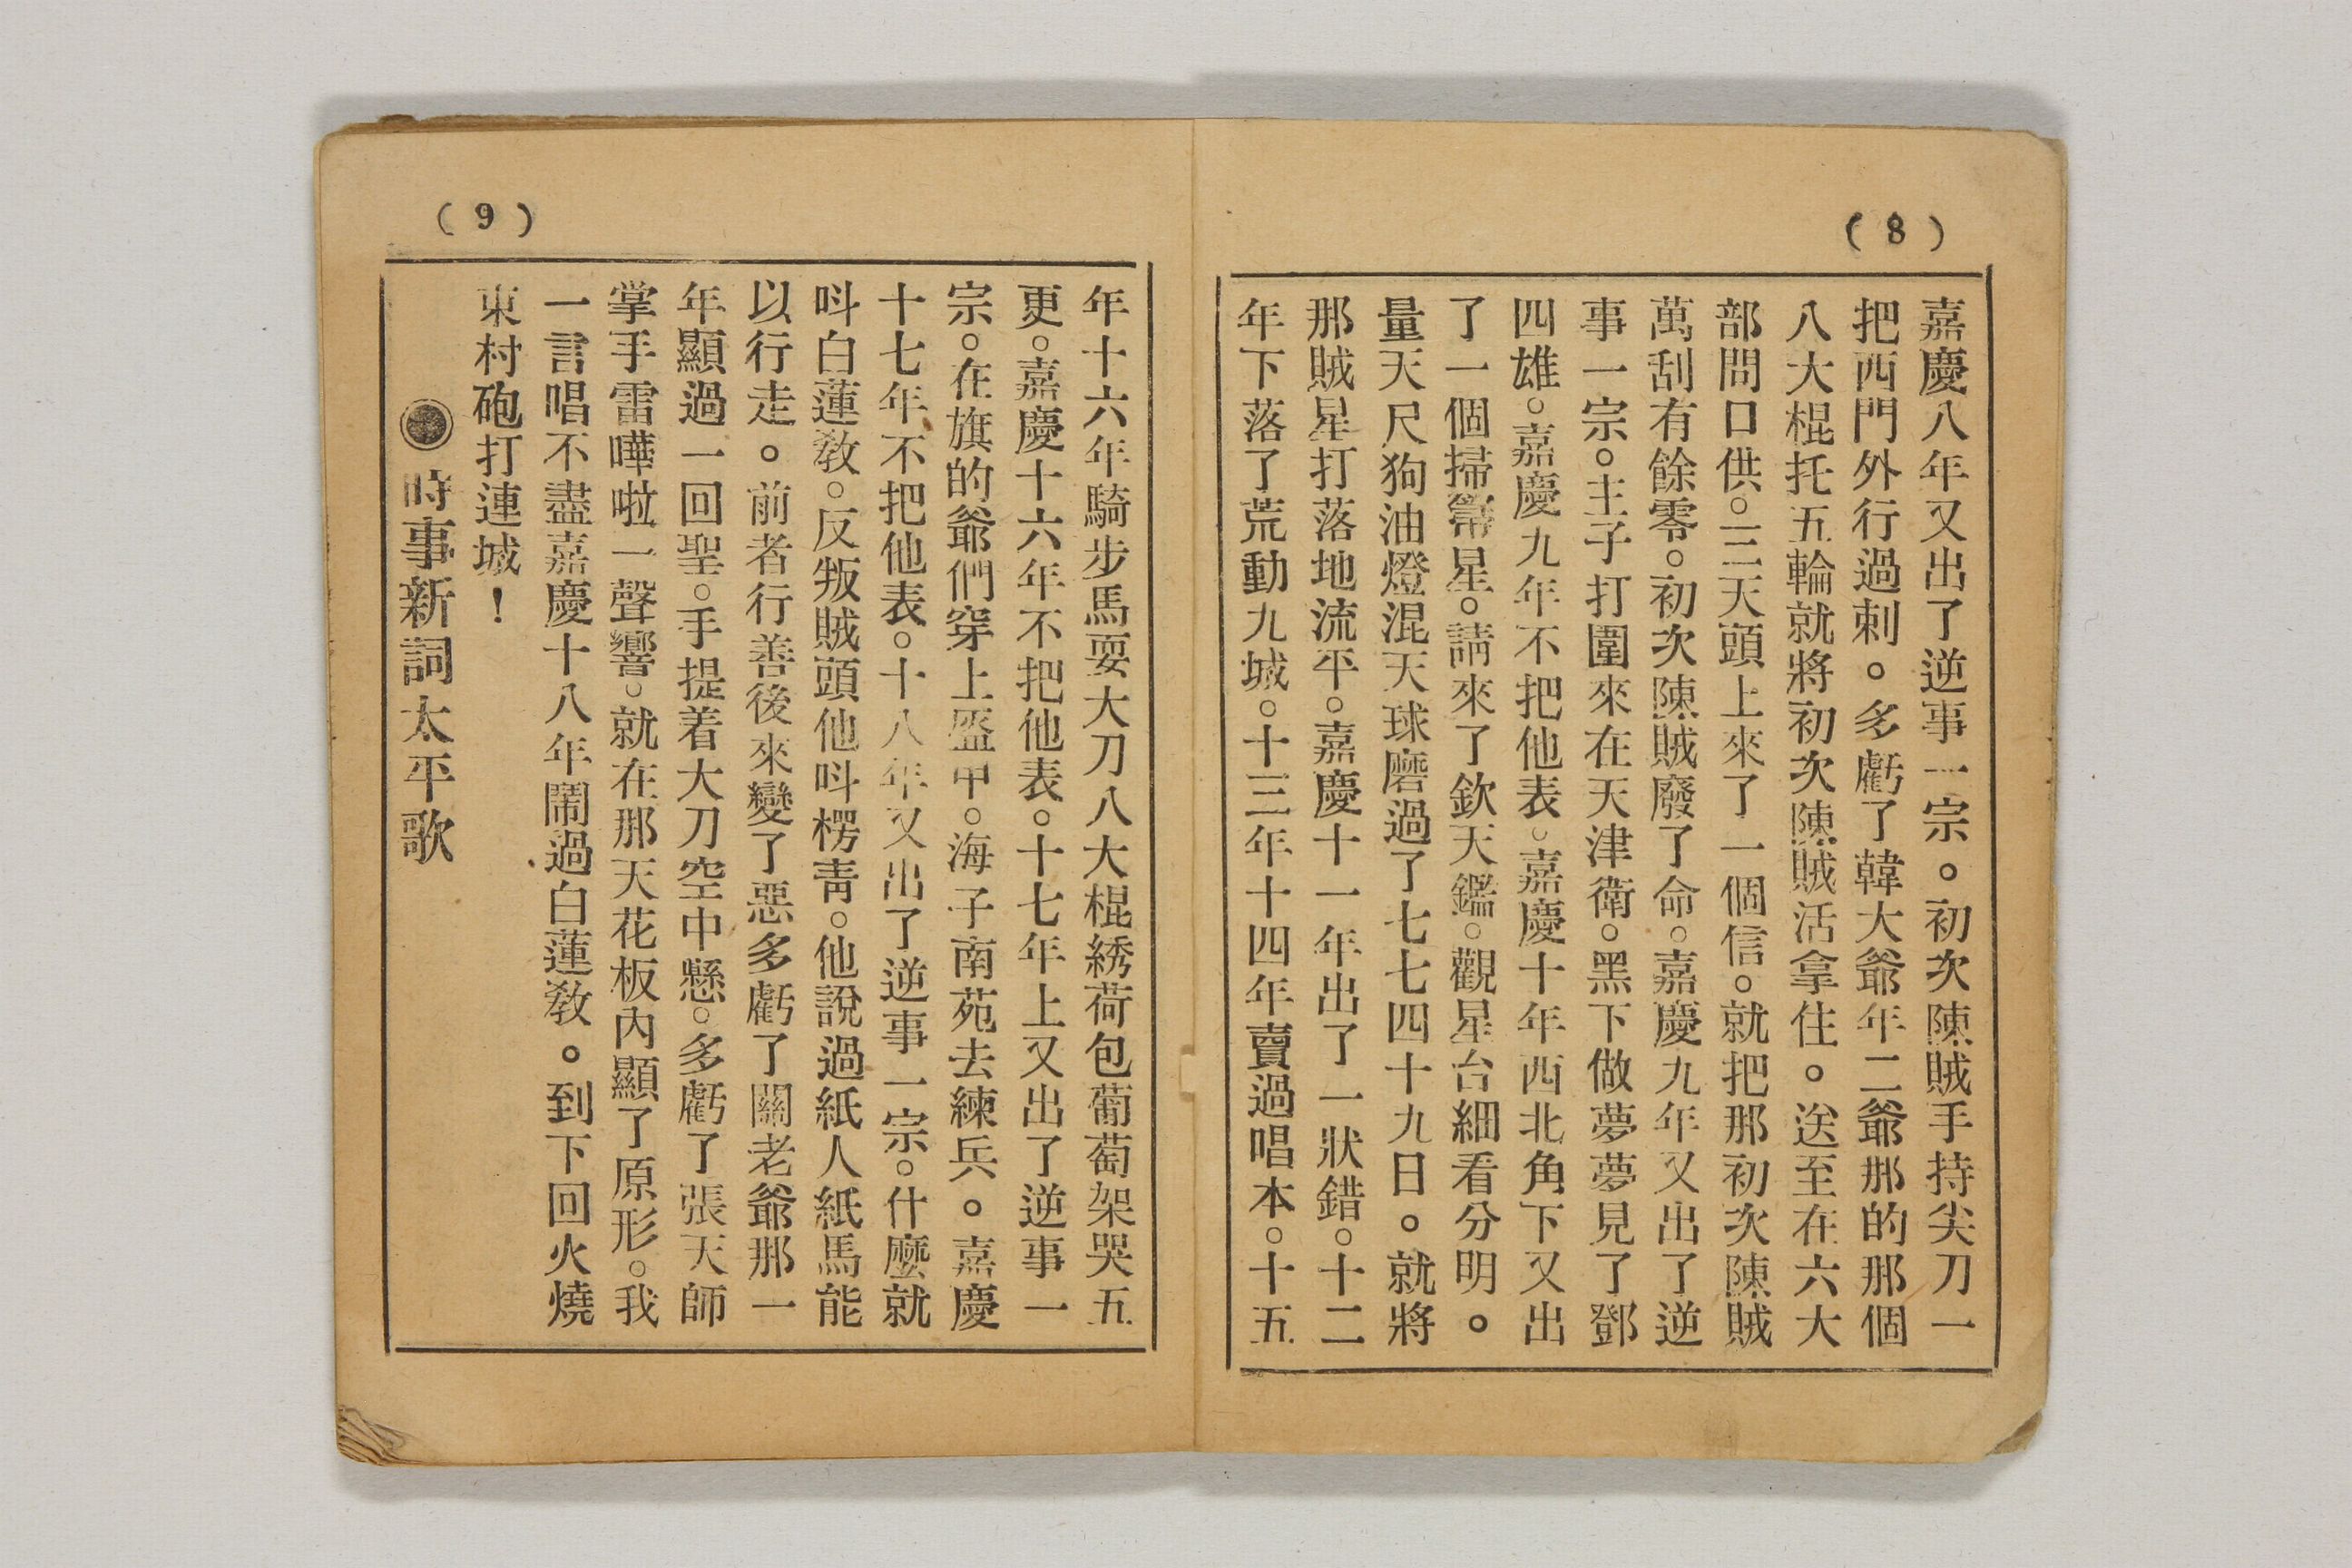 (8)
嘉慶八年又出了逆事一宗。初次陳賊手持尖刀一
把西門外行過刺。多虧了韓大爺年二爺那的那個
八大棍托五輪就將初次陳賊活拿住。送至在六大
部問口供。三天頭上來了一個信。就把那初次陳賊
萬刮有餘零。初次陳賊廢了命。嘉慶九年又出了逆
事一宗。主子打圍來在天津衛。黑下做夢夢見了鄧
四雄。嘉慶九年不把他表。嘉慶十年西北角下又出
了一個掃箒星。請來了欽天鑑。觀星台細看分明。
量天尺狗油燈混天球磨過了七七四十九日。就將
那賊星打落地流平。嘉慶十一年出了一狀錯。十二
年下落了荒動九城。十三年十四年賣過唱本。十五
(9)
年十六年騎步馬耍大刀八大棍綉荷包葡萄架哭五
更。嘉慶十六年不把他表。十七年上又出了逆事一
宗。在旗的爺們穿上盔甲。海子南苑去練兵。嘉慶
十七年不把他表。十八年又出了逆事一宗。什麼就
呌白蓮教。反叛賊頭他呌楞青。他說過紙人紙馬能
以行走。前者行善後來變了惡多虧了關老爺那一
年顯過一回聖。手提着大刀空中懸。多虧了張天師
掌手雷嘩啦一聲響。就在那天花板內顯了原形。我
一言唱不盡嘉慶十八年鬧過白蓮教。到下回火燒
東村砲打連城！
時事新詞太平歌